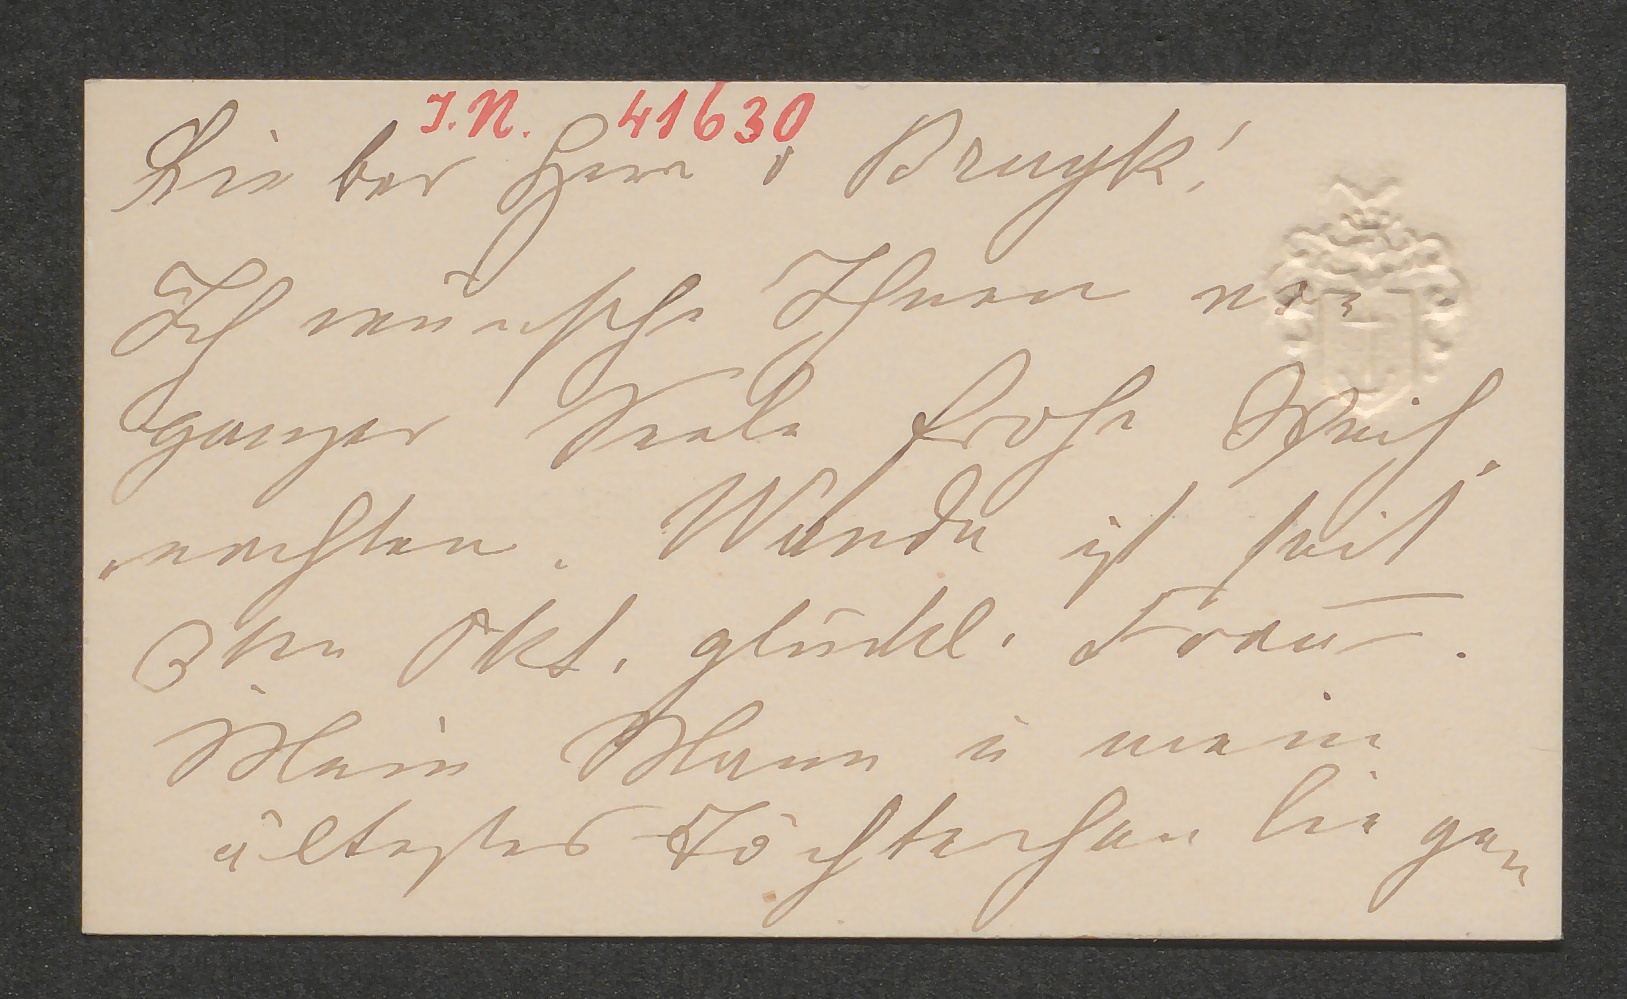 I.N. 41630
Lieber Herr v Bruyk!
Ich wünsche Ihnen von
ganzer Seele frohe Weih-
nachten. Wanda ist seit
3ten Okt. glückl. Frau.
Mein Mann u mein
ältestes Töchterchen liegen